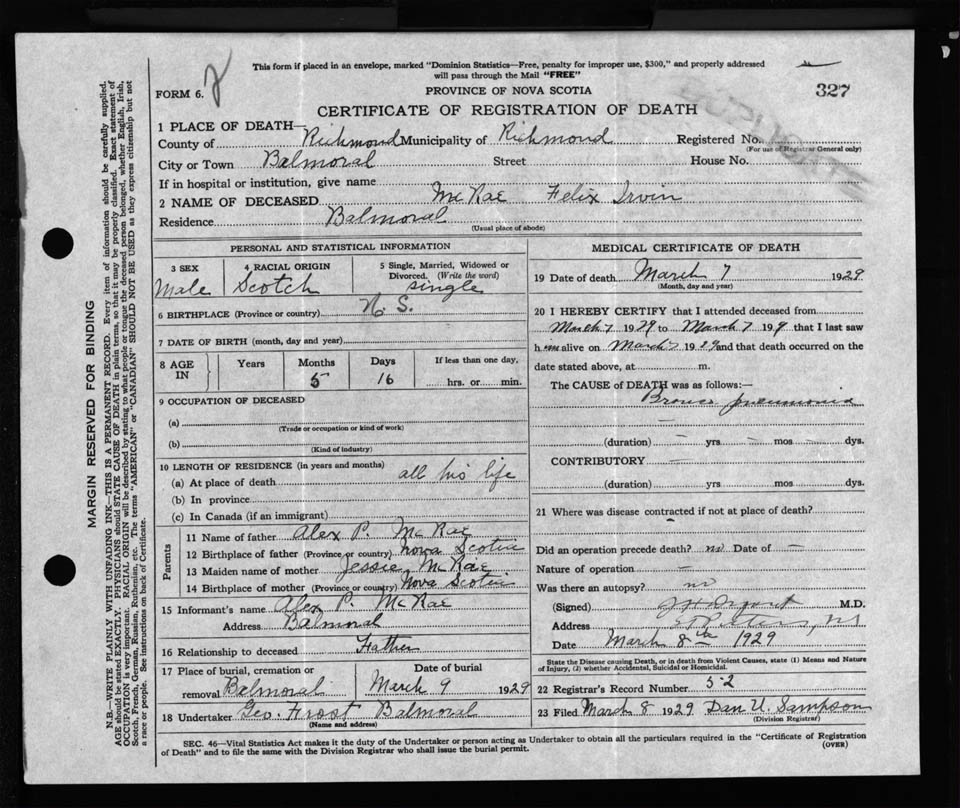 This form if placed in an envelope, marked "Dominion Statistics—Free, penalty for improper use, $300," and properly addressed
will pass through the Mail "FREE"
FORM 6.
2
PROVINCE OF NOVA SCOTIA
327
CERTIFICATE OF REGISTRATION OF DEATH
1 PLACE OF DEATH—
County of Richmond Municipality of Richmond Registered No.
(For use of Registrar General only)
City or Town Balmoral Street House No.
If in hospital or institution, give name
2 NAME OF DECEASED McRae Felix Irvin
Residence Balmoral
(Usual place of abode)
PERSONAL AND STATISTICAL INFORMATION
3 SEX 4 RACIAL ORIGIN 5 Single, Married, Widowed or
Divorced. (Write the word)
Male Scotch single
6 BIRTHPLACE (Province or country) N. S.
7 DATE OF BIRTH (month, day and year)
8 AGE IN Years Months Days If less than one day,
5 16 hrs. or min.
9 OCCUPATION OF DECEASED
(a)
(Trade or occupation or kind of work)
(b)
(Kind of industry)
10 LENGTH OF RESIDENCE (in years and months)
(a) At place of death all his life
(b) In province
(c) In Canada (if an immigrant)
Parents
11 Name of father Alex P. McRae
12 Birthplace of father (Province or country) Nova Scotia
13 Maiden name of mother Jessie McRae
14 Birthplace of mother (Province or country) Nova Scotia
15 Informant's name Alex P. McRae
Address Balmoral
16 Relationship to deceased Father
17 Place of burial, cremation or Date of burial
removal Balmoral March 9 1929
18 Undertaker Geo. Frost Balmoral
(Name and address)
MEDICAL CERTIFICATE OF DEATH
19 Date of death March 7 1929
(Month, day and year)
20 I HEREBY CERTIFY that I attended deceased from
March 7 1929 to March 7 199 that I last saw
h alive on March 7 1929 and that death occurred on the
date stated above, at m.
The CAUSE of DEATH was as follows:—
pneumonia
—
(duration) — yrs — mos — dys.
CONTRIBUTORY —
(duration) yrs mos dys.
21 Where was disease contracted if not at place of death?
Did an operation precede death? no Date of —
Nature of operation —
Was there an autopsy? no
(Signed) M.D.
Address St Peters, NS
Date March 8th 1929
State the Disease causing Death, or in death from Violent Causes, state (1) Means and Nature
of Injury, (2) whether Accidental, Suicidal or Homicidal.
22 Registrar's Record Number 52
23 Filed March 8 1929 Dan U. Sampson
(Division Registrar)
SEC. 46—Vital Statistics Act makes it the duty of the Undertaker or person acting as Undertaker to obtain all the particulars required in the "Certificate of Registration
of Death" and to file the same with the Division Registrar who shall issue the burial permit.
(OVER)
MARGIN RESERVED FOR BINDING
N.B.—WRITE PLAINLY WITH UNFADING INK—THIS IS A PERMANENT RECORD. Every item of information should be carefully supplied.
AGE should be stated EXACTLY. PHYSICIANS should STATE CAUSE OF DEATH in plain terms, so that it may be properly classified. Exact statement of
OCCUPATION is very important. RACIAL ORIGIN will be described by stating to what people or tongue the deceased person belonged, whether English, Irish,
Scotch, French, German, Russian, Ruthenian, etc. The terms "AMERICAN" or "CANADIAN" SHOULD NOT BE USED as they express citizenship but not
a race or people. See instructions on back of Certificate.